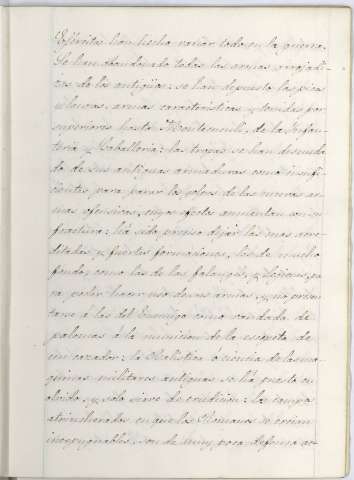 Espiritus han hecho variar todo en la guerra.
Se han abandonado todas las armas arrojadi-
zas de los antiguos: se han depuesto las picas
y lanzas, armas caracteristicas y tenidas por
superiores hasta Montecuculi, de la Infan-
teria y Caballeria: las tropas se han desnuda-
do de sus antiguas armaduras como insufi-
cientes para parar los golpes de las nuevas ar-
mas ofensivas, cuyos efectos aumentan con su
fractura: ha sido preciso dejar las mas acre-
ditadas, y fuertes formaciones, las de mucho
fondo, como las de las falanges, y legiones, pa-
ra poder hacer uso de sus armas, y no presen-
tarse á las del Enemigo como vandada de
palomas á la municion de la escopeta de
un cazador: la Balistica ó ciencia de las ma-
quinas militares antiguas se há puesto en
olvido, y solo sirve de erudicion: los campos
atrincherados en que los Romanos se creian
inexpugnables, son de muy poca defensa ac-